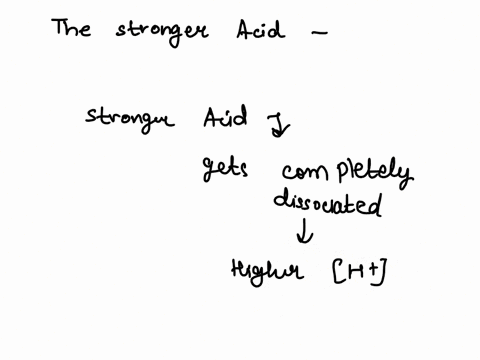 The stronger Acid -
stronger Acid ↓
gets completely
dissociated
↓
Higher [H+]